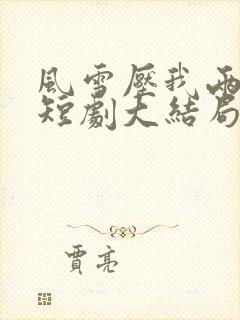 風雪壓我兩
短劇大結局
賈亮